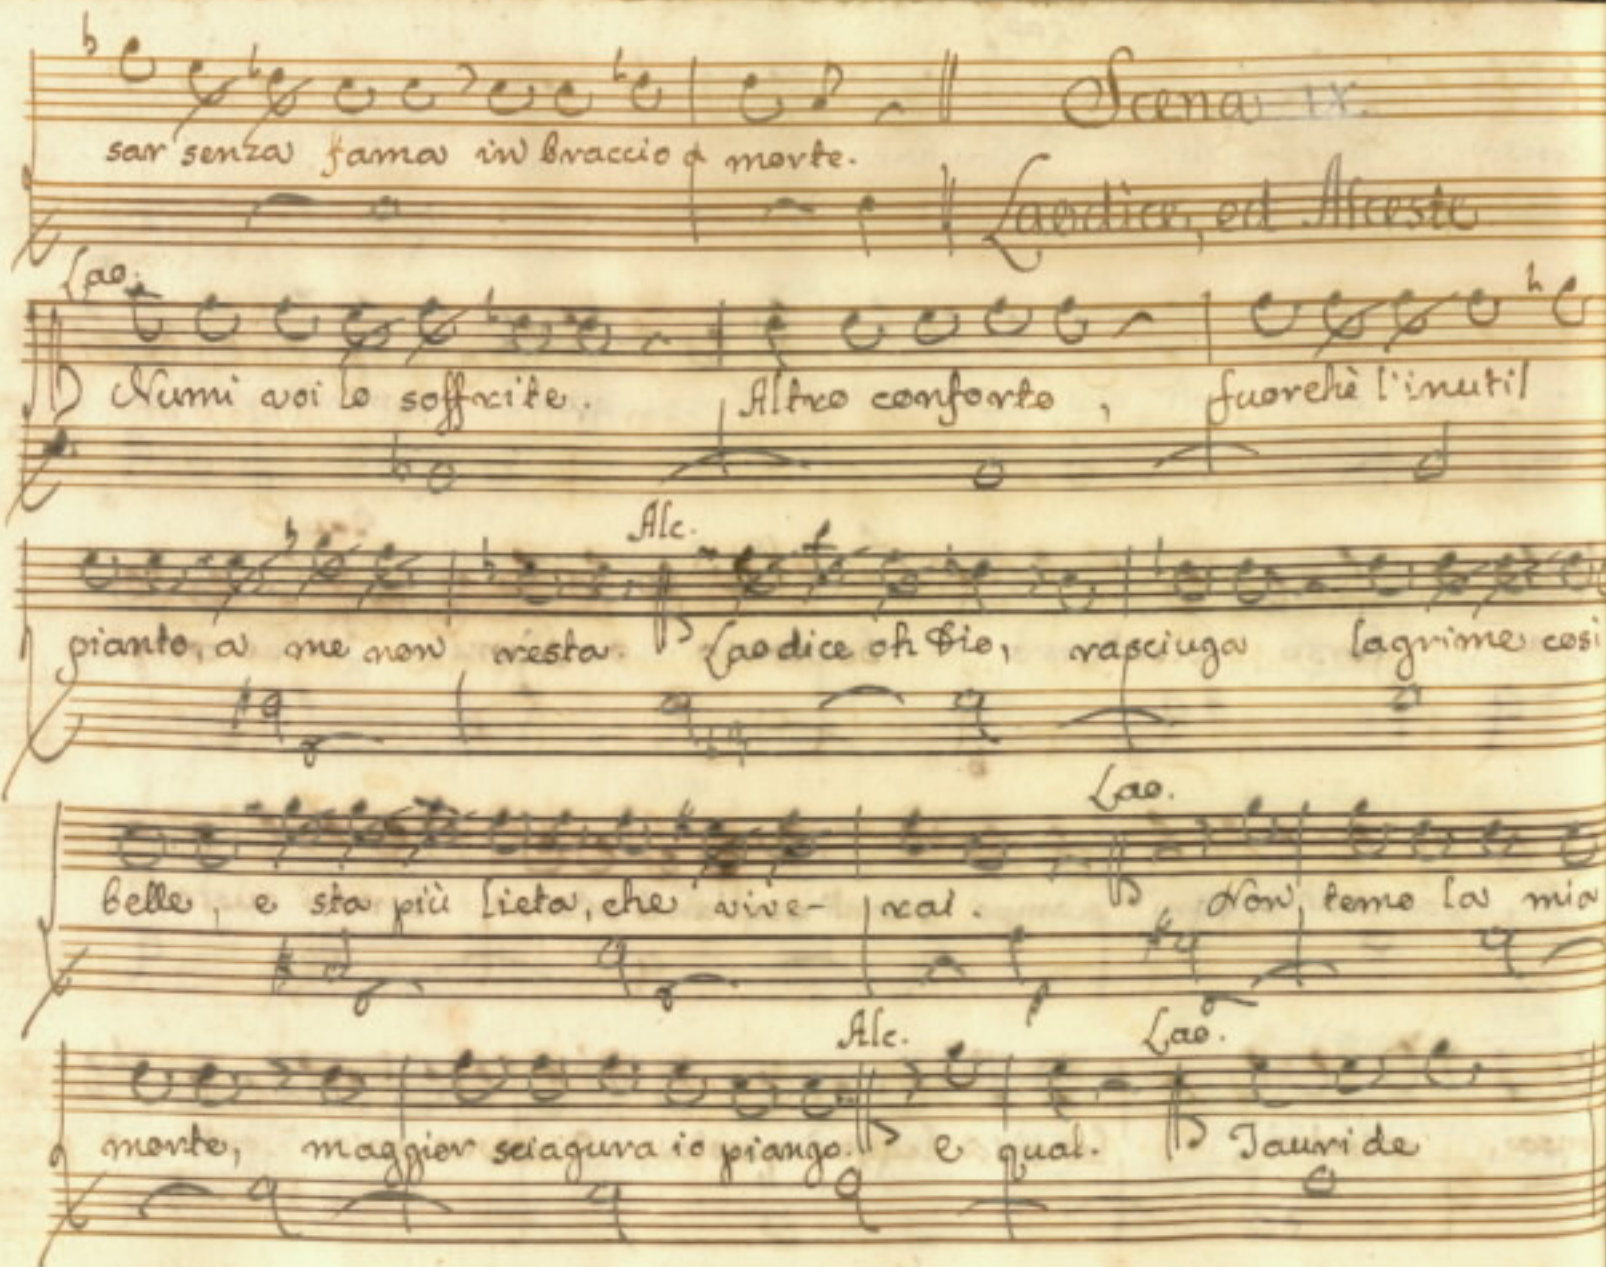 Scena IX.
sar senza fama in braccio a morte.
Laodice, ed Alceste
Lao.
Numi voi lo soffrite. Altro conforto, fuorchè l'inutil
Alc.
pianto, a me non resta. Laodice oh Dio, rasciuga lagrime così
Lao.
belle, e sta più lieta, che vive- rai. Non temo la mia
Alc. Lao.
morte, maggior sciagura io piango. e qual. Tauride